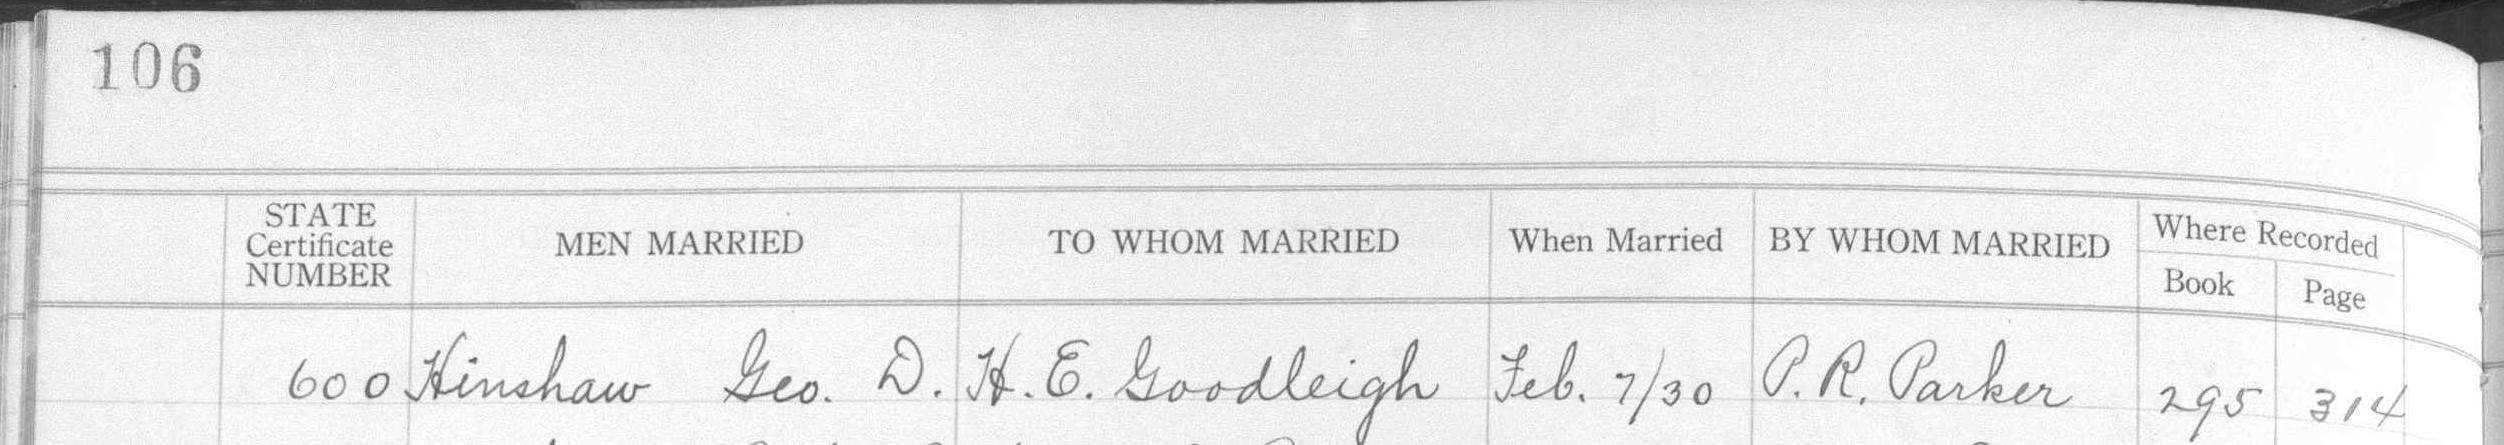 106
STATE Certificate NUMBER MEN MARRIED TO WHOM MARRIED When Married BY WHOM MARRIED Where Recorded
Book Page
600 Hinshaw Geo. D. H. E. Goodleigh Feb. 7/30 P. R. Parker 295 314